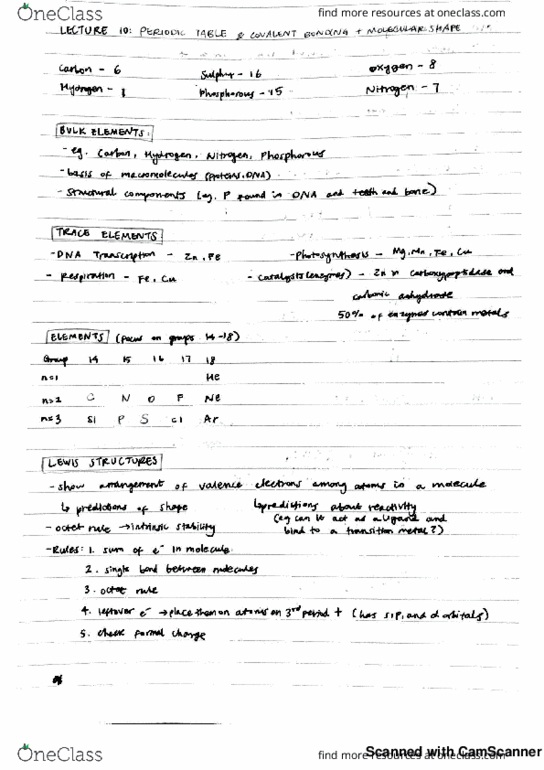 OneClass
find more resources at oneclass.com
LECTURE 10: PERIODIC TABLE & COVALENT BONDING + MOLECULAR SHAPE
Carbon - 6 Sulphur - 16 Oxygen - 8
Hydrogen - 1 Phosphorous - 15 Nitrogen - 7
BULK ELEMENTS:
- eg. Carbon, Hydrogen, Nitrogen, Phosphorous
- basis of macromolecules (proteins, DNA)
- Structural components (eg. P found in DNA and teeth and bone)
TRACE ELEMENTS
- DNA Transcription - Zn, Fe - Photosynthesis - Mg, Mn, Fe, Cu
- Respiration - Fe, Cu - Catalysts (enzymes) - Zn in carboxypeptidase and
carbonic anhydrase
50% of enzymes contain metals
ELEMENTS (focus on groups 14-18)
Group 14 15 16 17 18
n=1 He
n=2 C N O F Ne
n=3 Si P S Cl Ar
LEWIS STRUCTURES
- show arrangement of valence electrons among atoms in a molecule
↳ predictions of shape ↳ predictions about reactivity
- octet rule → intrinsic stability (eg can it act as a ligand and
bind to a transition metal?)
- Rules: 1. sum of e⁻ in molecule
2. single bond between molecules
3. octet rule
4. leftover e⁻ → place them on atoms on 3rd period + (has s, p, and d orbitals)
5. check formal charge
OneClass
find more resources at oneclass.com
Scanned with CamScanner